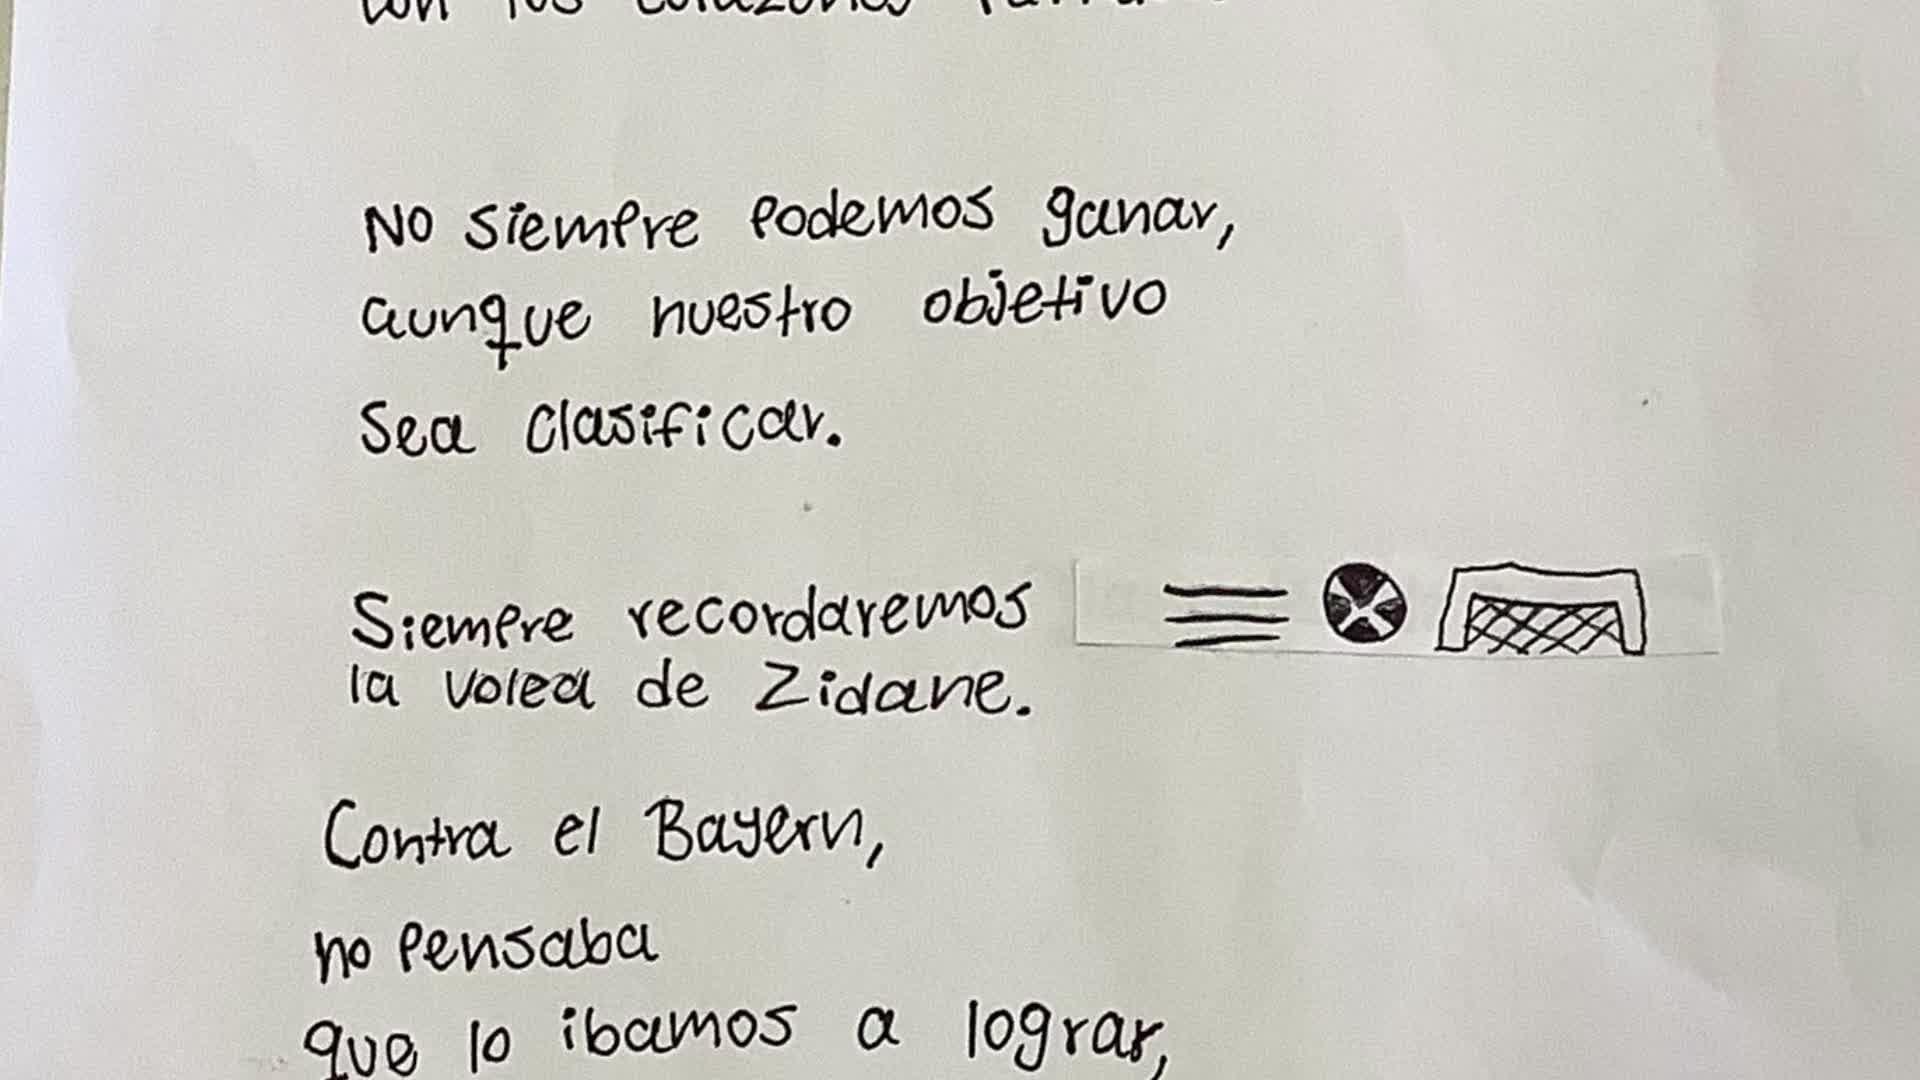 con los corazones
No siempre podemos ganar,
aunque nuestro objetivo
sea clasificar.
Siempre recordaremos
la volea de Zidane.
Contra el Bayern,
no pensaba
que lo ibamos a lograr,